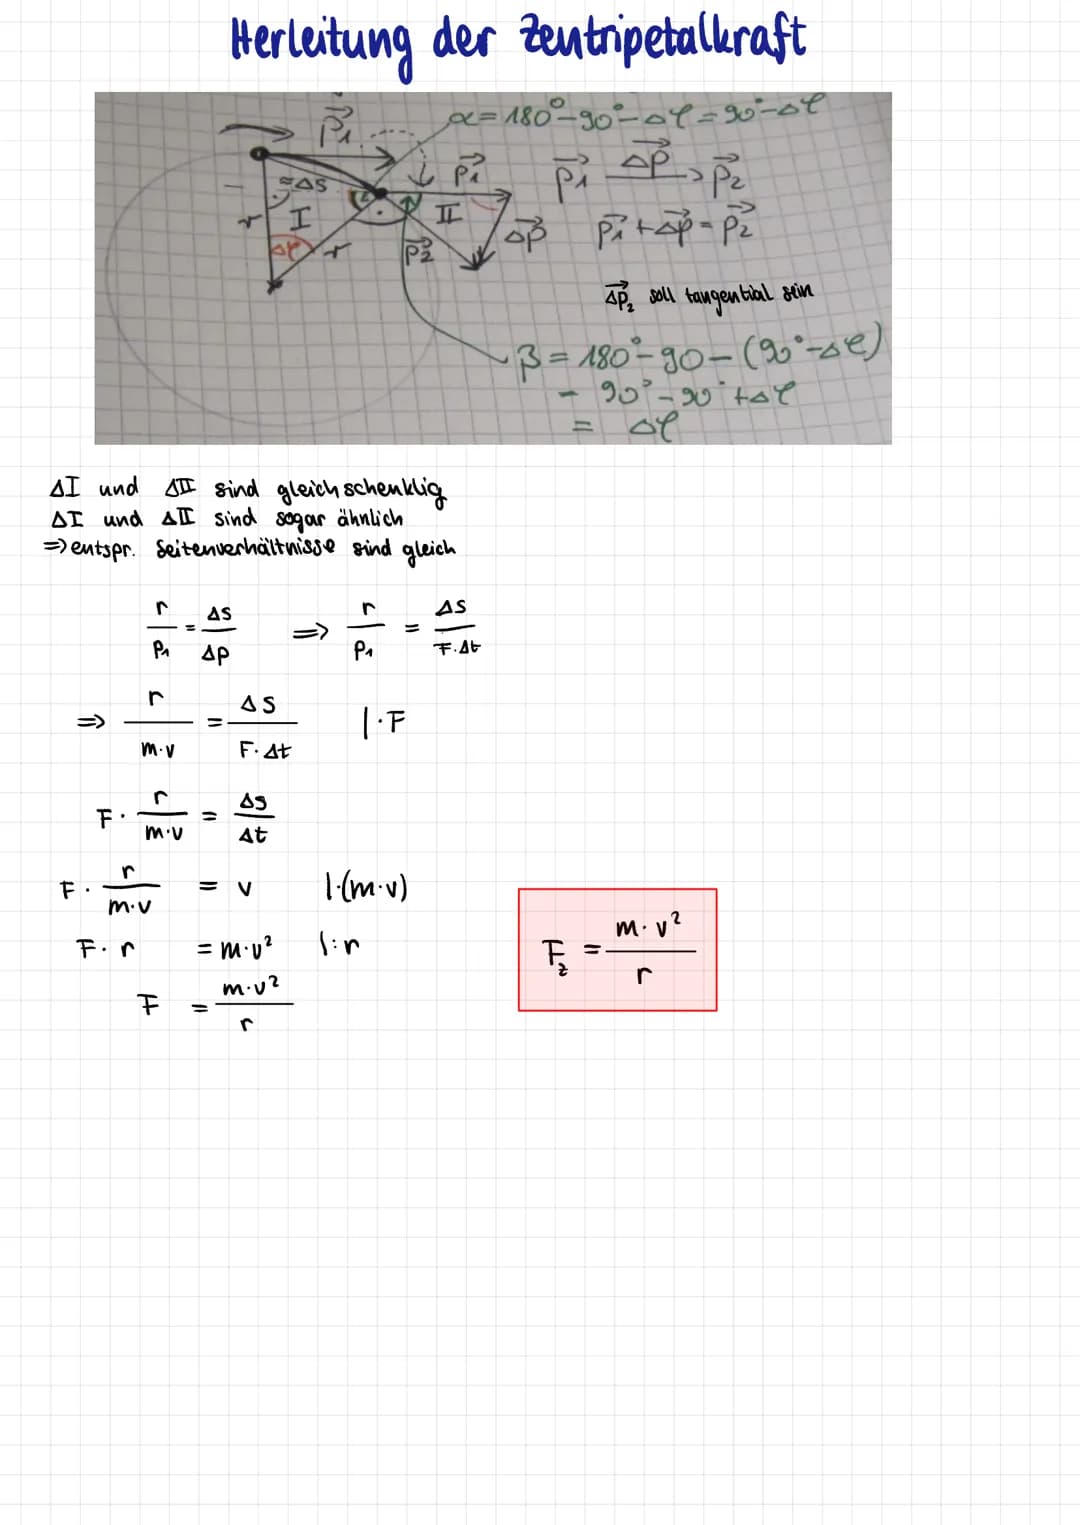 Herleitung der Zentripetalkraft
p₁ α = 180° - 90° - Δφ = 90° - Δφ
≈Δs p₁ p₁ Δp → p₂
r I II
Δφ r p₂ Δp p₁ + Δp = p₂
Δp₂ soll tangential sein
β = 180° - 90 - (90° - Δφ)
= 90° - 90° + Δφ
= Δφ
ΔI und ΔII sind gleichschenklig
ΔI und ΔII sind sogar ähnlich
=> entspr. Seitenverhältnisse sind gleich
r/p₁ = Δs/Δp => r/p₁ = Δs/F·Δt
=> r/m·v = Δs/F·Δt |·F
F· r/m·v = Δs/Δt
F· r/m·v = v |·(m·v)
F·r = m·v² |:r
F = m·v²/r
F_z = m·v²/r